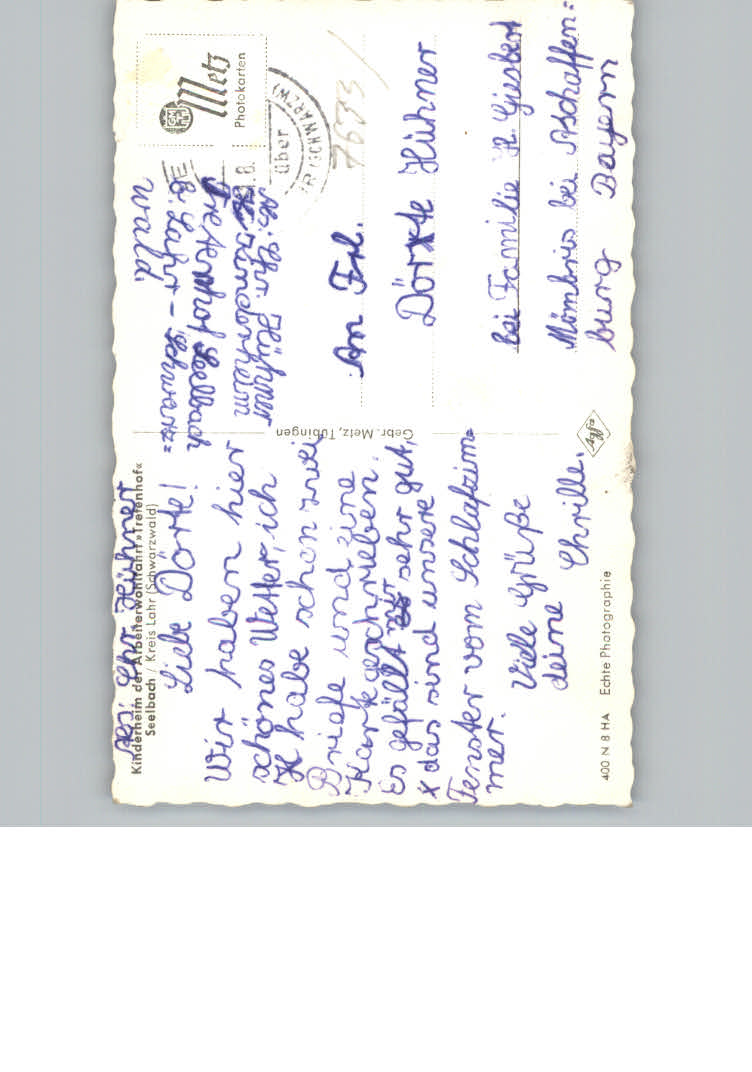 Abs: Chr. Hühner
Kinderheim der Arbeiterwohlfahrt »Tretenhof«
Seelbach / Kreis Lahr (Schwarzwald)
Liebe Dörte!
Wir haben hier
schönes Wetter, ich
habe schon zwei
Briefe und eine
Karte geschrieben.
Es gefällt mir sehr gut,
x das sind unsere
Fenster vom Schlafzim=
mer.
Viele Grüße
deine Chrille.
400 N 8 HA Echte Photographie
Gebr. Metz, Tübingen
Agfa
Metz
Photokarten
über
(SCHWARZW)
7633
Abs: Chr. Hühner
Kinderheim
Tretenhof Seelbach
b. Lahr - Schwarz=
wald
An Frl.
Dörte Hühner
bei Familie R. Giesbert
Mömbris bei Aschaffen=
burg Bayern